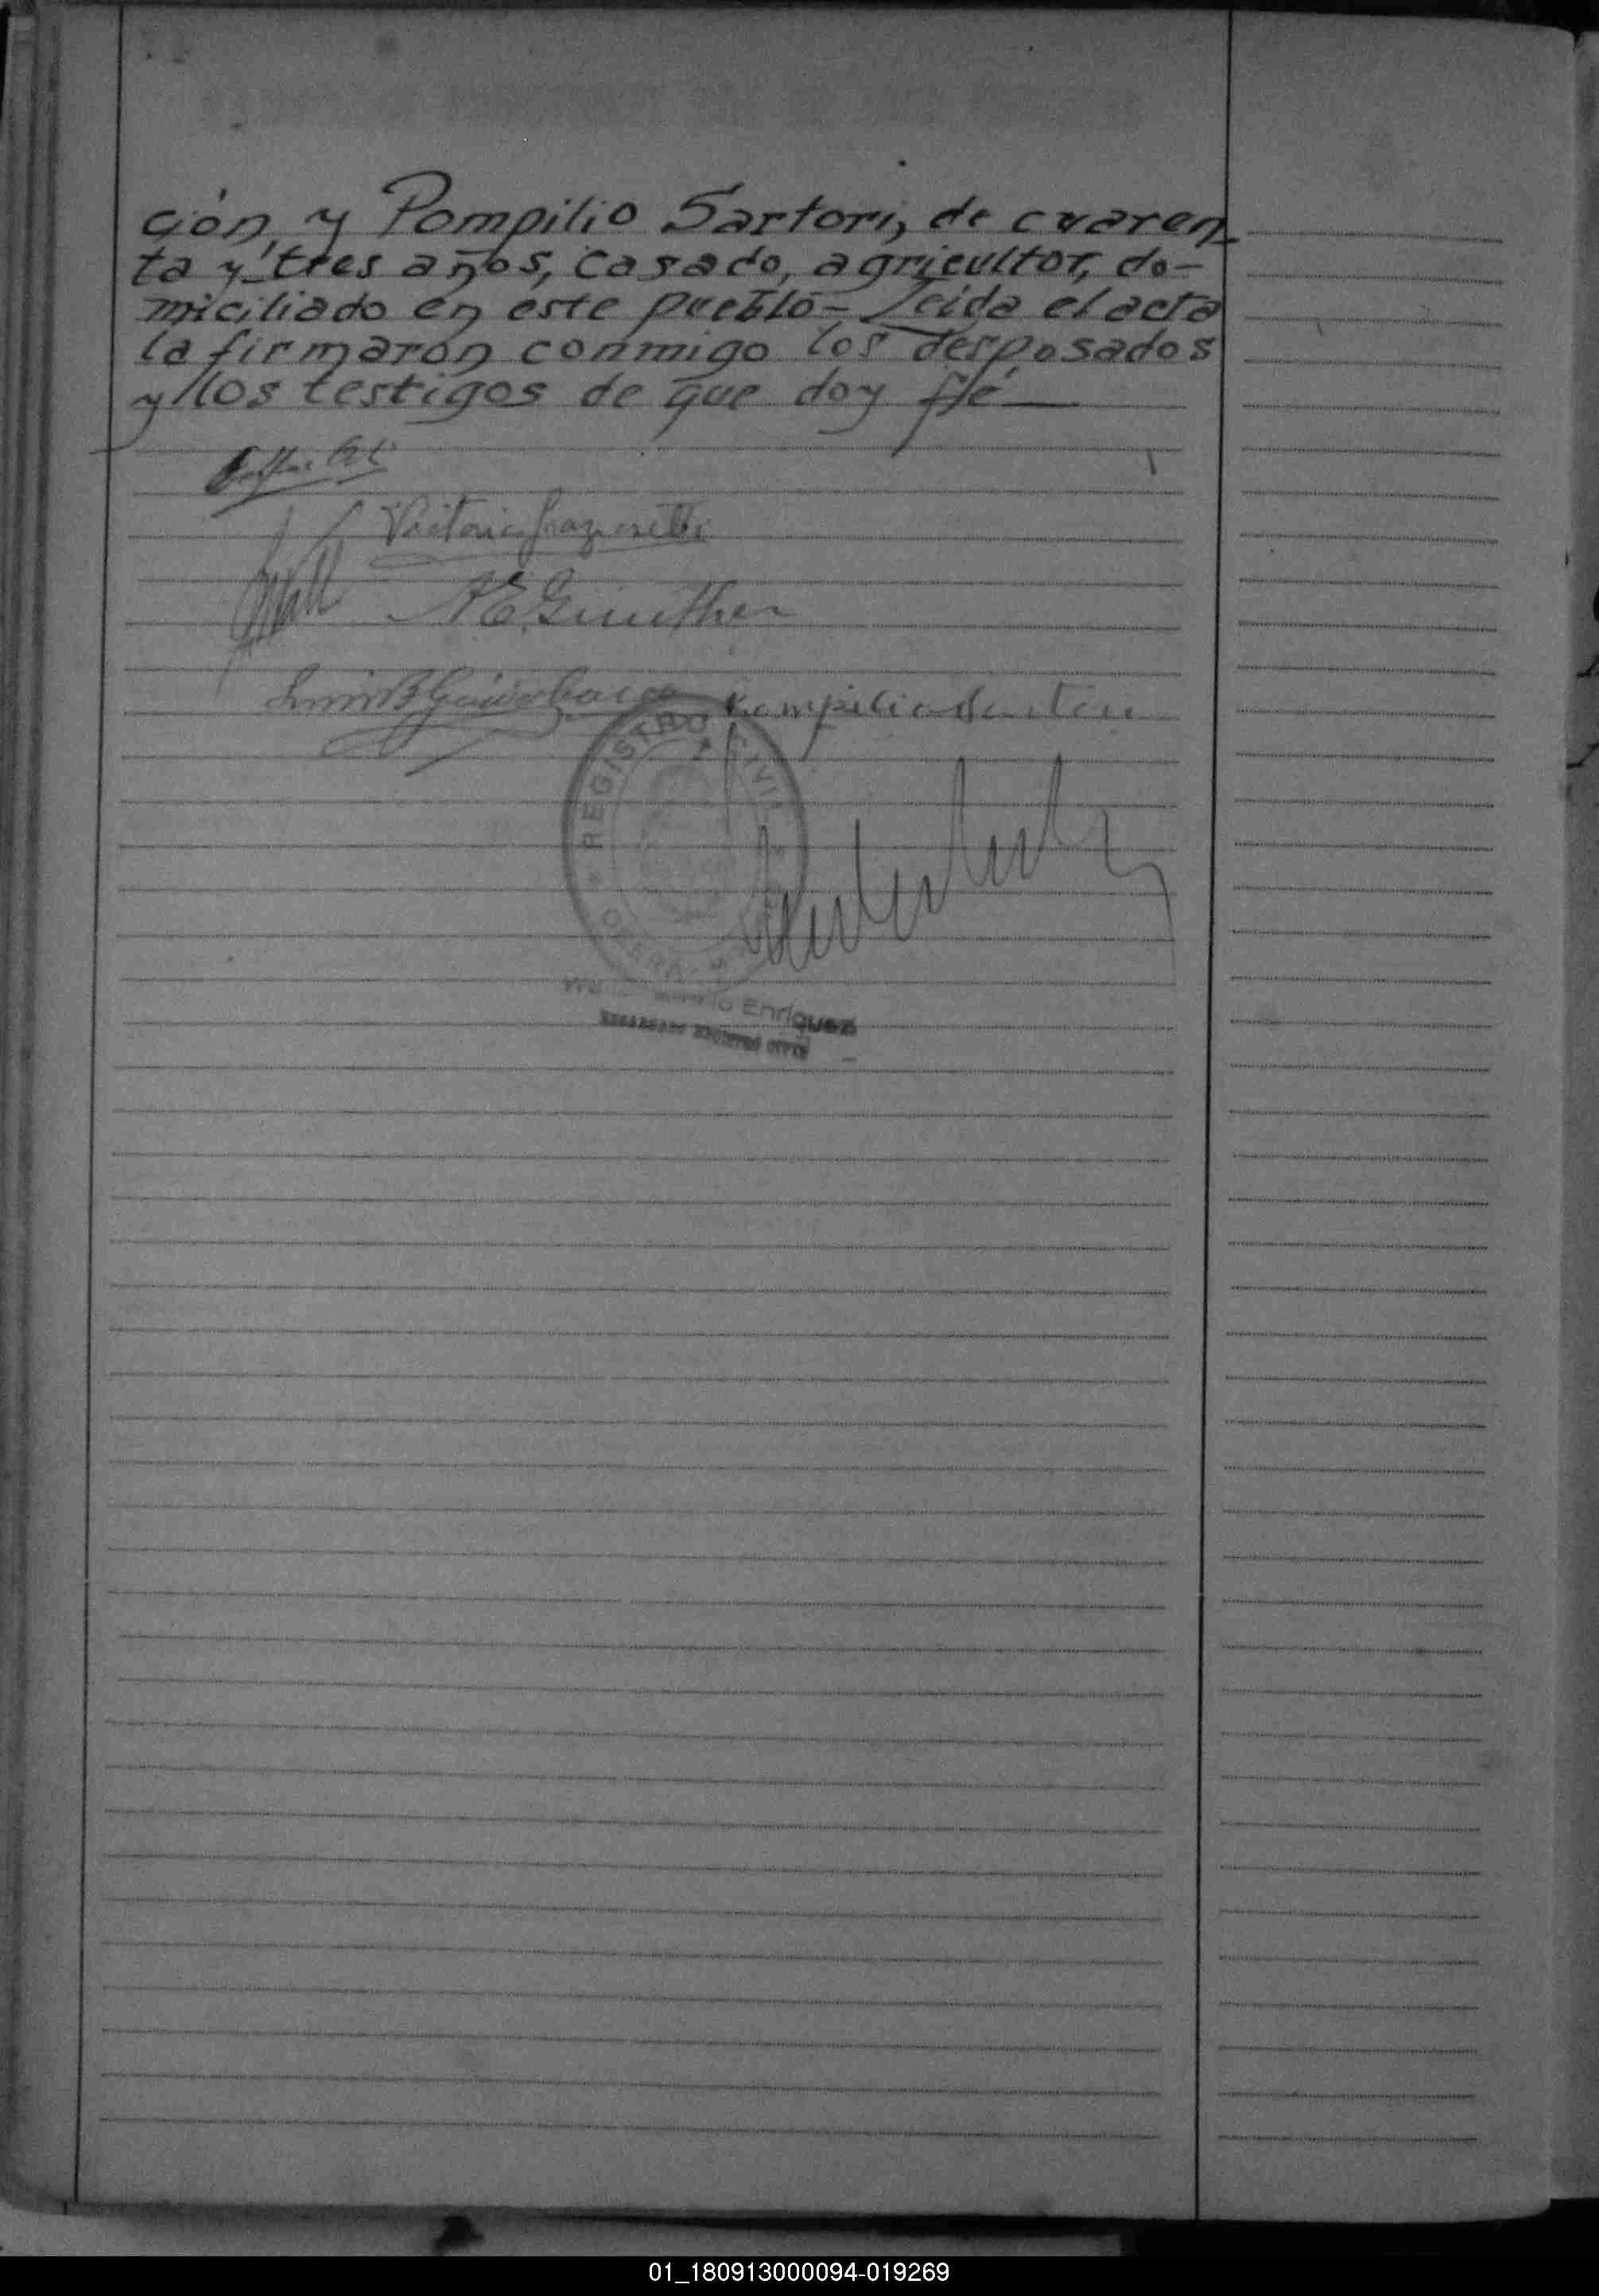 ción, y Pompilio Sartori, de cuaren-
ta y tres años, casado, agricultor, do-
miciliado en este pueblo - Leida el acta
la firmaron conmigo los desposados
y los testigos de que doy fé
Victoria
A E Günther
Luis B
Pompilio Sartori
REGISTRO CIVIL
OBERA
Enriquez
ENCARGADO REGISTRO CIVIL
01_180913000094-019269